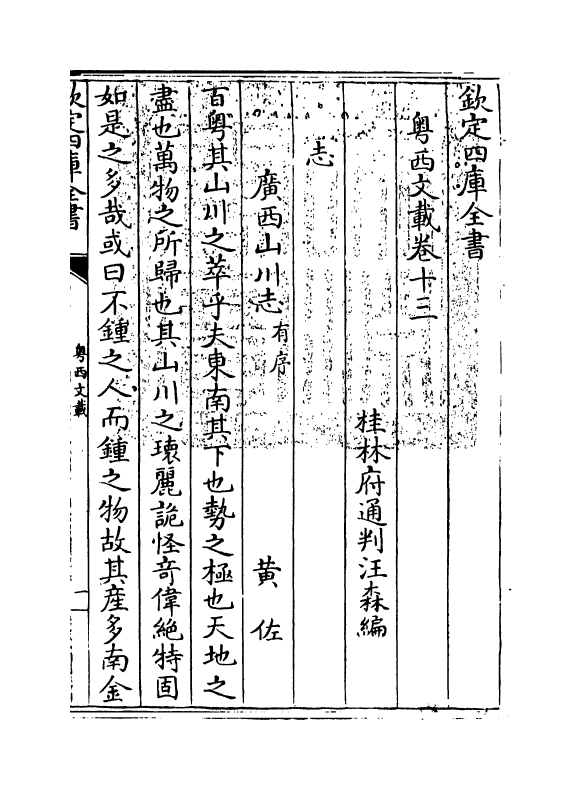 欽定四庫全書
粤西文載卷十三
桂林府通判汪森編
志
廣西山川志有序　黄佐
百粤其山川之萃乎夫東南其下也勢之極也天地之
盡也萬物之所歸也其山川之瓌麗詭怪奇偉絶特固
如是之多哉或曰不鍾之人而鍾之物故其産多南金
欽定四庫全書
粤西文載
一